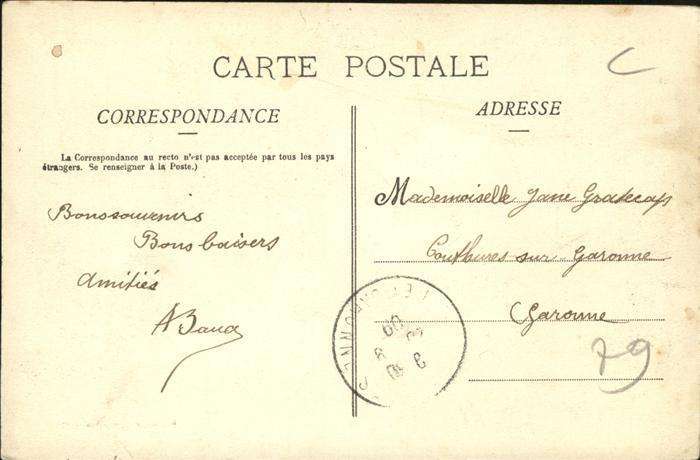 C
CARTE POSTALE
CORRESPONDANCE
La Correspondance au recto n'est pas acceptée par tous les pays
étrangers. Se renseigner à la Poste.)
Bons souvenirs
Bons baisers
Amitiés
ADRESSE
Mademoiselle Jane Gratecap
Couthures sur Garonne
Garonne
79